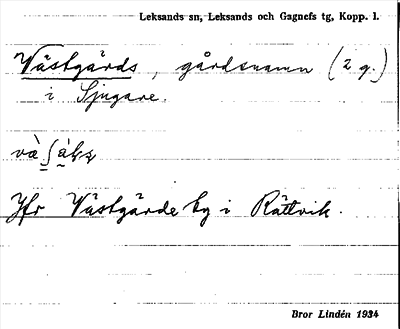 Leksands sn, Leksands och Gagnefs tg, Kopp. l.
Västgärds, gårdsnamn (2 g.)
i Sjugare.
Jfr Västgärde by i Rättvik.
Bror Lindén 1934